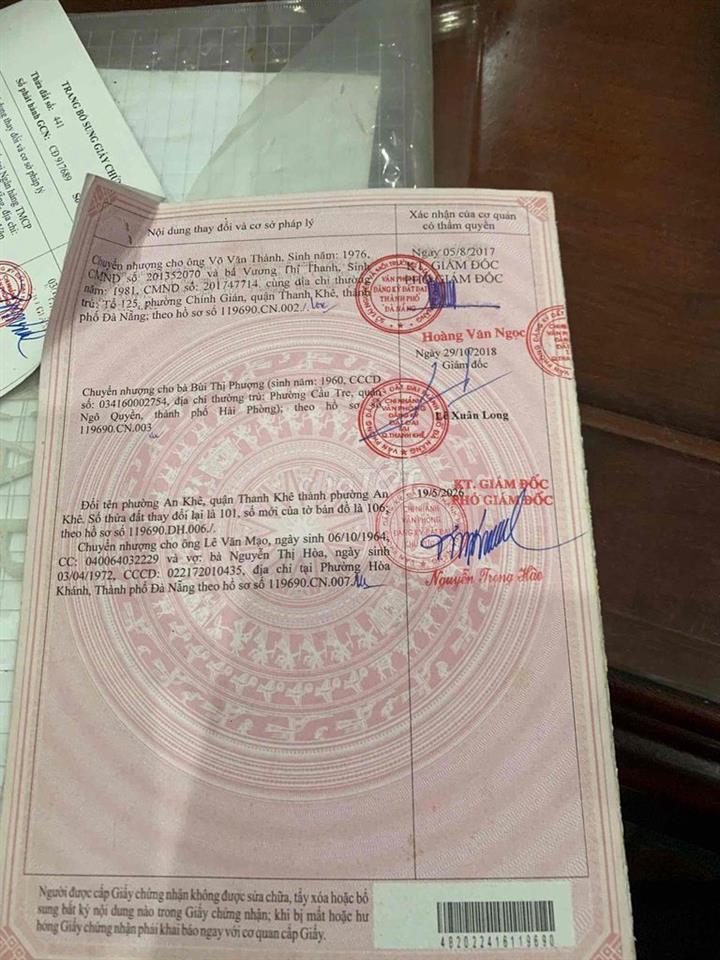 TRANG BỔ SUNG GIẤY CHỨ
Thửa đất số: 441
Số phát hành GCN: CĐ 917689
dung thay đổi và cơ sở pháp lý
Ngân hàng TMCP
địa chỉ:
Nội dung thay đổi và cơ sở pháp lý
Xác nhận của cơ quan
có thẩm quyền
Chuyển nhượng cho ông Võ Văn Thánh, Sinh năm: 1976,
CMND số: 201352070 và bà Vương Thị Thanh, Sinh
năm: 1981, CMND số: 201747714, cùng địa chỉ thường
trú: Tổ 125, phường Chính Gián, quận Thanh Khê, thành
phố Đà Nẵng; theo hồ sơ số 119690.CN.002./.
Ngày 05/8/2017
KT. GIÁM ĐỐC
PHÓ GIÁM ĐỐC
VĂN PHÒNG
ĐĂNG KÝ ĐẤT ĐAI
THÀNH PHỐ
ĐÀ NẴNG
Hoàng Văn Ngọc
Chuyển nhượng cho bà Bùi Thị Phượng (sinh năm: 1960, CCCD
số: 034160002754, địa chỉ thường trú: Phường Cầu Tre, quận
Ngô Quyền, thành phố Hải Phòng); theo hồ sơ
119690.CN.003
Ngày 29/10/2018
Giám đốc
CHI NHÁNH
VĂN PHÒNG
ĐĂNG KÝ
ĐẤT ĐAI
TẠI
Q.THANH KHÊ
Lê Xuân Long
Đổi tên phường An Khê, quận Thanh Khê thành phường An
Khê. Số thửa đất thay đổi lại là 101, số mới của tờ bản đồ là 106;
theo hồ sơ 119690.DH.006./.
Chuyển nhượng cho ông Lê Văn Mạo, ngày sinh 06/10/1964,
CC: 040064032229 và vợ: bà Nguyễn Thị Hòa, ngày sinh
03/04/1972, CCCD: 022172010435, địa chỉ tại Phường Hòa
Khánh, Thành phố Đà Nẵng theo hồ sơ số 119690.CN.007
19/5/2026
KT. GIÁM ĐỐC
PHÓ GIÁM ĐỐC
CHI NHÁNH
VĂN PHÒNG
ĐĂNG KÝ ĐẤT ĐAI
Nguyễn Trọng Hảo
Người được cấp Giấy chứng nhận không được sửa chữa, tẩy xóa hoặc bổ
sung bất kỳ nội dung nào trong Giấy chứng nhận; khi bị mất hoặc hư
hỏng Giấy chứng nhận phải khai báo ngay với cơ quan cấp Giấy.
482022416119690